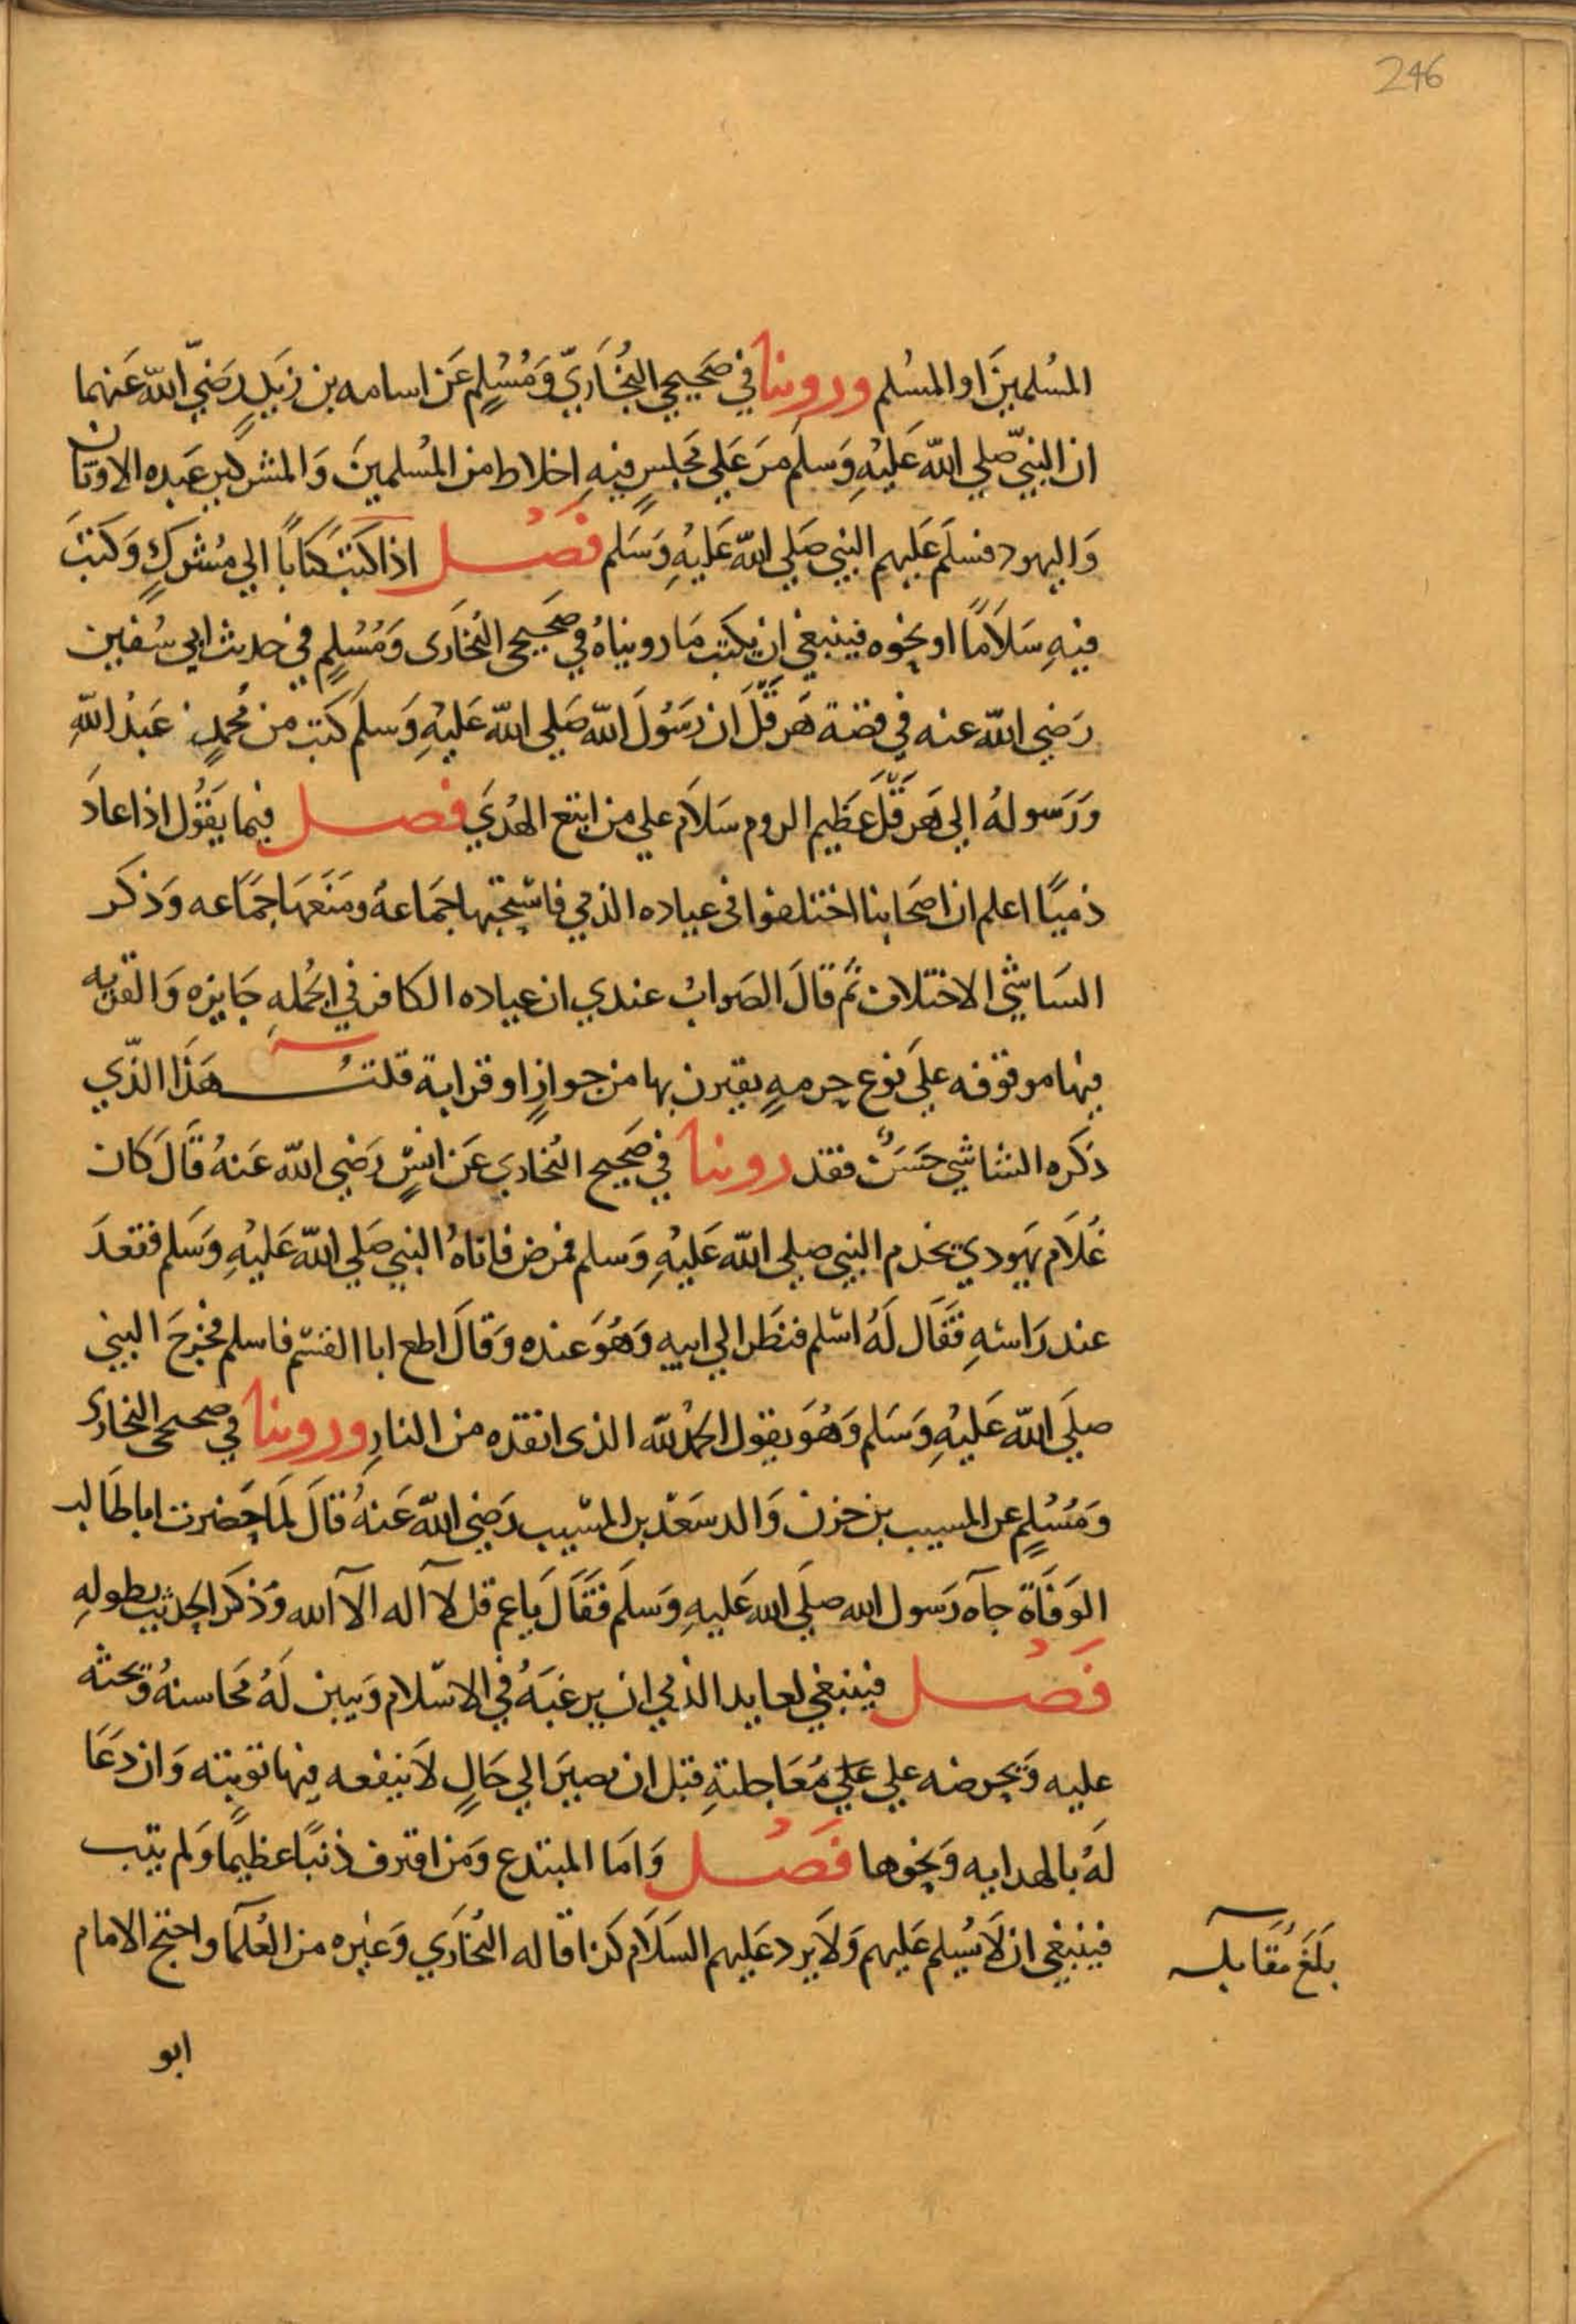 246
المسُلمينَ او المسُلم وروينا في صَحيحي البُخَاريّ وَمُسُلِم عَن اسامه بن زَيدٍ رَضيّ الله عَنهما
ان النبيّ صلي الله عَليْهِ وَسلَم مرَ عَلي مجَلسٍ فيهِ اخلاط من المسُلمينَ وَالمشركين عَبده الاوثان
وَاليهود فسلمَ عَليهم النبي صَلي الله عَليْهِ وَسَلم فَصْــل اذا كتبَ كتَابًا الي مُشركٍ وَكتبَ
فيهِ سَلَامًا او نحوه فينبغي ان يكتب مَا رويناهُ في صَحيحي البُخَارى وَمُسُلِم في حديث ابي سُفين
رَضي الله عنه في قصة هَرقَّلَ ان رَسُولَ الله صَلي الله عَليْهِ وَسلَم كتب من محُمدٍ عَبدُ اللهِ
وَرَسولهُ الي هَرقَّلَ عَظيم الروم سَلاَم علي من اتبع الهُدَي فصــل فيما يَقُول اذا عادَ
ذميًا اعلم ان اصَحَابنا اختلفوا فى عياده الذمي فاستحبّها جَمَاعةُ ومَنَعَهَا جَمَاعه وَذكَر
السَاشي الاختلاف ثمَ قالَ الصَوابُ عندي ان عياده الكافر في الجُملهِ جَايزه وَالقربه
فيها موقوفه علَي نوع حرمهٍ يقترن بها من جوازٍ او قرابة قلتُ هَذَا الذّي
ذكَره الشاشي حَسَنٌ فقد روينا في صَحيح البُخاري عَن انسٍ رَضي الله عَنهُ قَالَ كَان
غُلَام يَهودي يخدم النبي صلي الله عَليْهِ وَسلم فمرض فاتاهُ النبي صَلي الله عَليْهِ وَسَلم فقعدَ
عند رَاسَهِ فَقَال لَهُ اسْلم فنظَر الي ابيهِ وَهُوَ عنده وَقالَ اطع ابا القسَم فاسلم فخرَجَ النبي
صلَي الله عَليْهِ وَسَلم وَهُوَ يقول الحَمدُ لله الذى انقذه من النارِ وروينا في صحيحي البخارى
وَمُسُلِم عن المسيب بن حزن وَالد سَعْد بن المسَيب رَضي الله عَنهُ قالَ لمَا حَضرت ابا طَالب
الوَفَاة جآه رَسول الله صلَي الله عَليهِ وَسلَم فقَالَ يَا عم قل لآ اله الآ الله وَذكَر الحَديث بطولهِ
فَصْــل فينبغي لعايد الذمي ان يرغبَهُ في الاسْلام وَيبين لَهُ محَاسنهُ وَيحثه
عليه وَيحرضه علي علي مُعَاجلتهِ قبل ان يصيرَ الي حَالٍ لاَ ينفعه فيها توبته وَان دَعَا
لَهُ بالهدايه وَنحوها فَصْــل وَامَا المبتدع وَمَن اقترف ذنبًا عظيمًا وَلم يتب
فينبغي ان لَا يسُلم عَليهم وَلاَ يرد عَليهم السَلاَم كذا قاله البُخَاري وَغيره من العُلمآ واحتج الامام
بَلَغَ مُقَابله
ابو